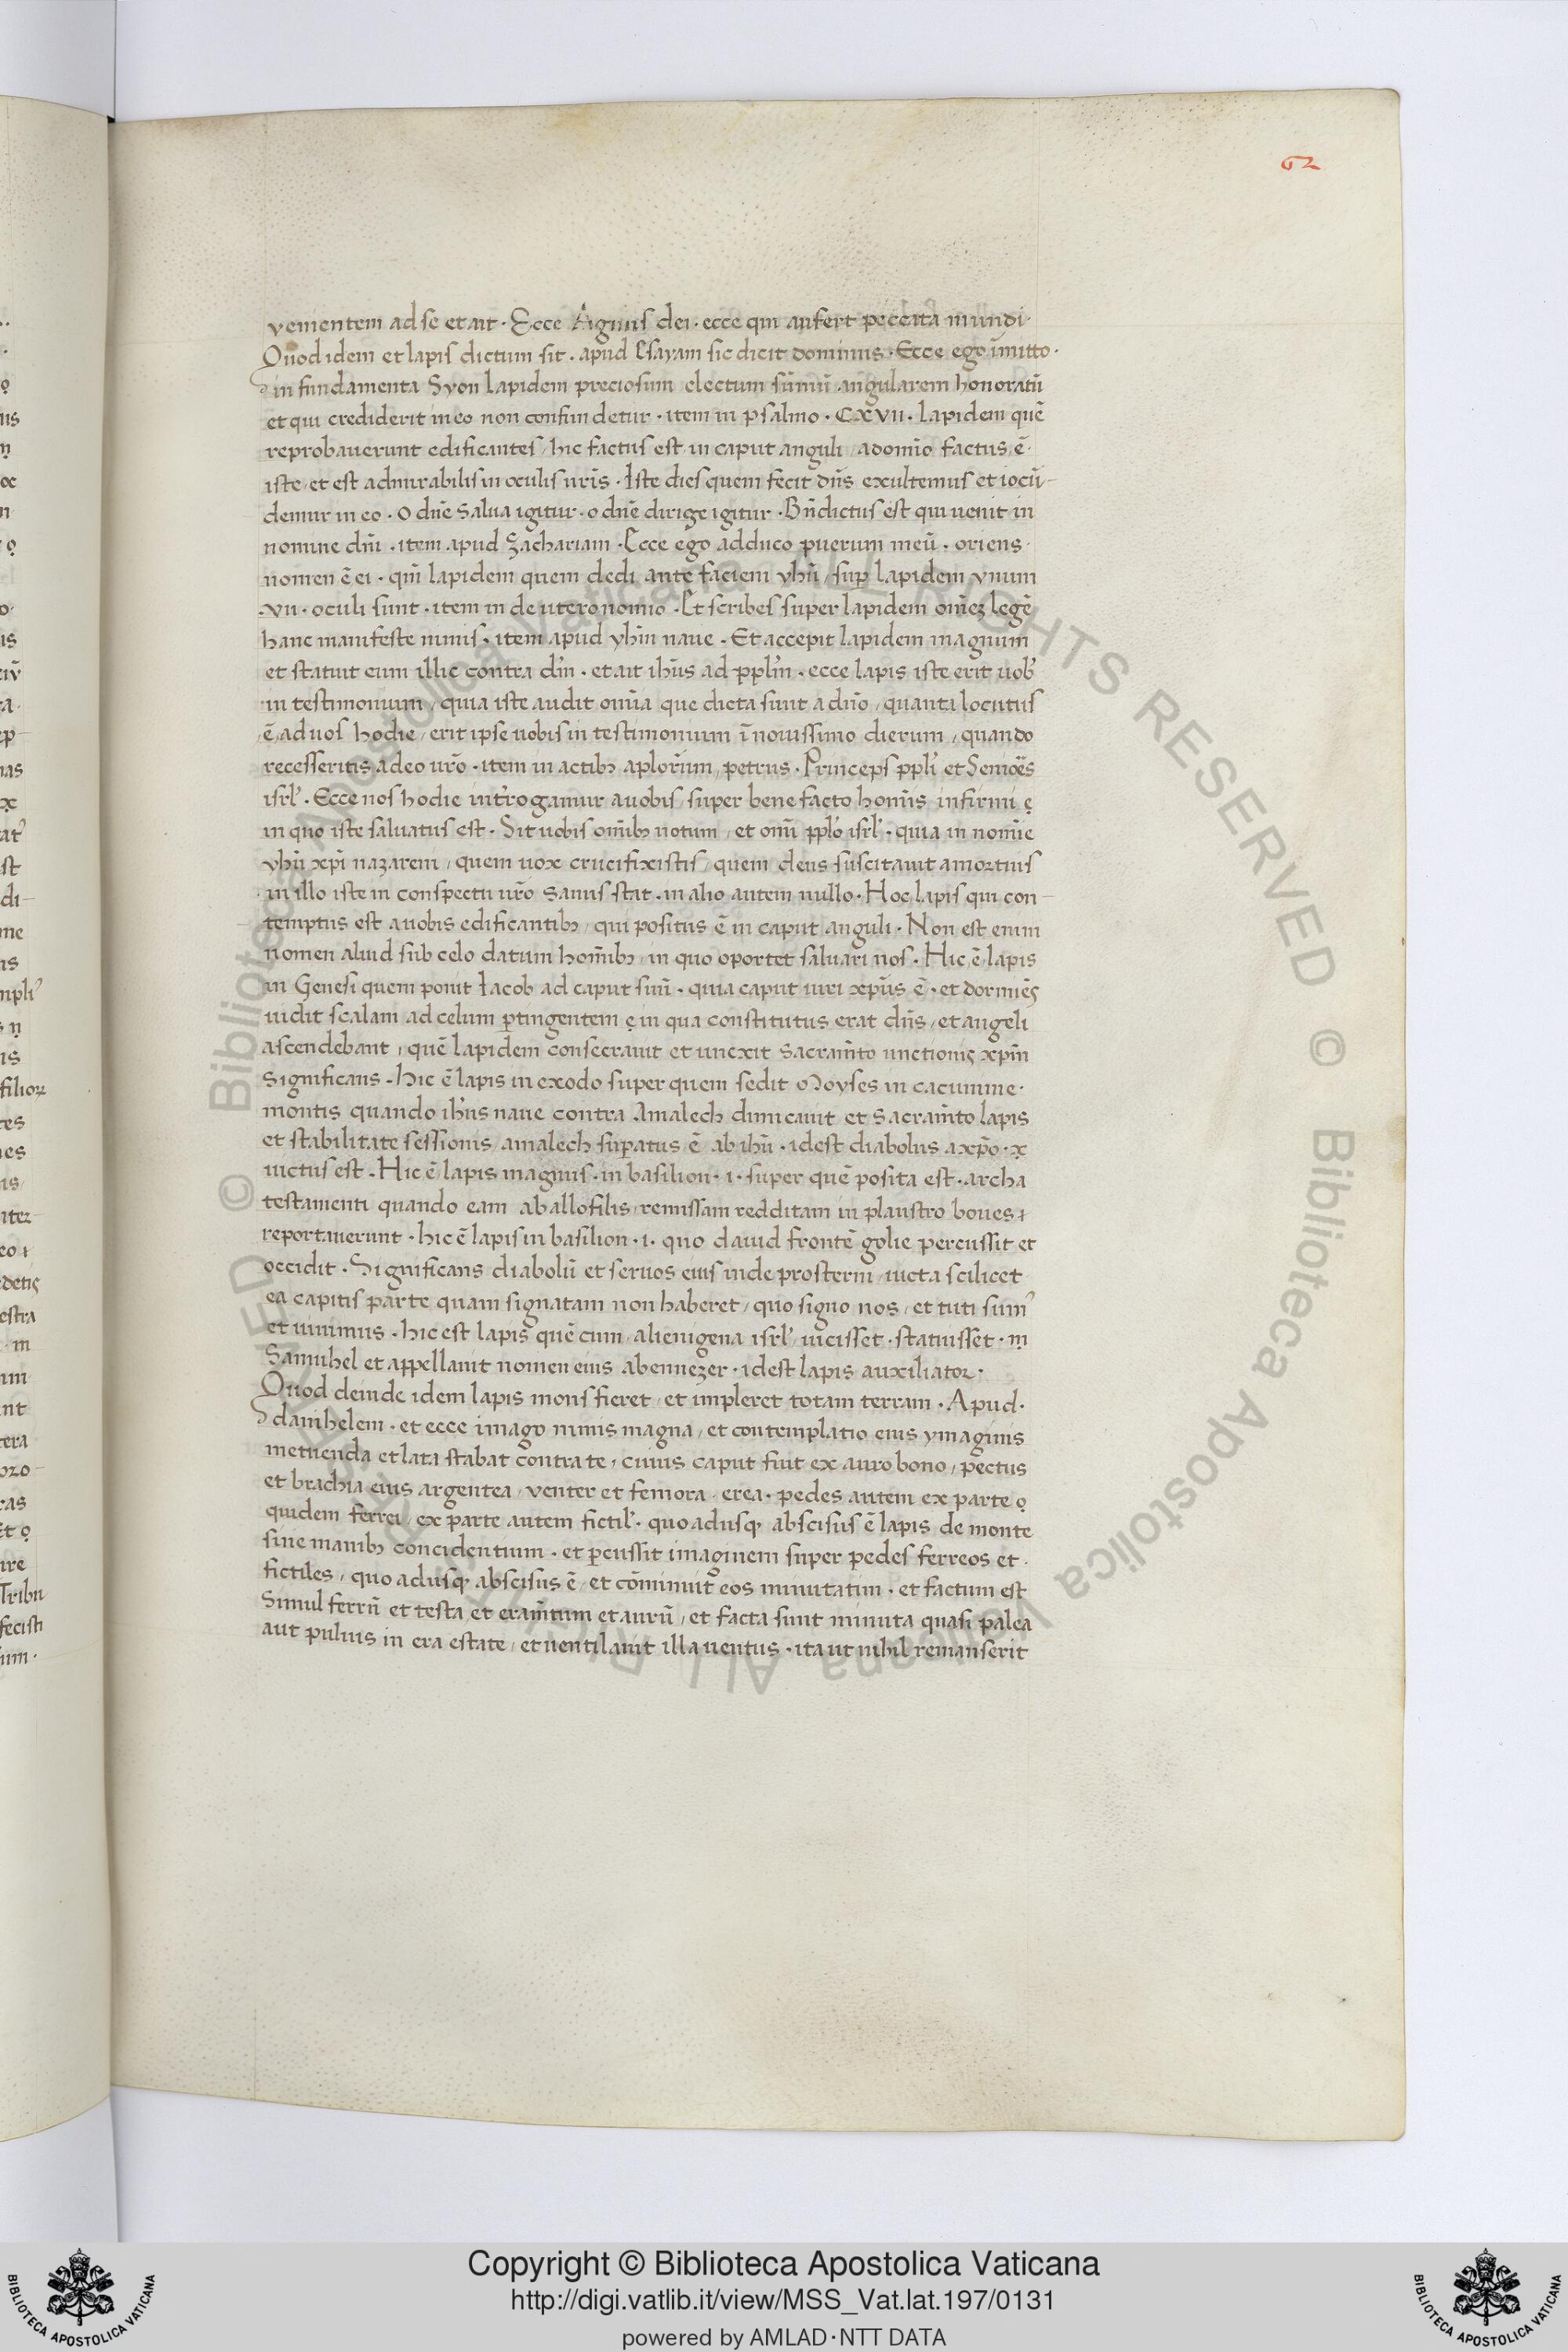 62
venientem ad se et ait · Ecce Agnus dei · ecce qui aufert peccata mundi ·
Quod idem et lapis dictum sit · apud Esayam sic dicit dominus · Ecce ego īmitto ·
in fundamenta Syon lapidem preciosum electum sūmū angularem honoratū
et qui crediderit in eo non confundetur · item in psalmo · CXVII · lapidem quē
reprobaverunt edificantes / hic factus est in caput anguli / a domīo factus ē ·
iste / et est admirabilis in oculis nr̄is · Iste dies quem fecit dn̄s exultemus et iocū-
demur in eo · O dn̄e salva igitur · o dn̄e dirige igitur · Bn̄dictus est qui uenit in
nomine dn̄i · item apud Zachariam · Ecce ego adduco puerum meū · oriens ·
nomen ē ei · qm̄ lapidem quem dedi ante faciem yhū / sup̱ lapidem vnum
·VII· oculi sunt · item in deuteronomio · Et scribes super lapidem om̄eꝫ legē
hanc manifeste nimis · item apud yhm̄ naue · Et accepit lapidem magnum
et statuit eum illic contra dm̄ · et ait ihūs ad pplm̄ · ecce lapis iste erit uob'
in testimonium / quia iste audit om̄ia que dicta sunt a dn̄o / quanta locutus
ē ad uos hodie / erit ipse uobis in testimonium ī nouissimo dierum / quando
recesseritis a deo ur̄o · item in actibꝫ aplorūm / petrus · Princeps ppli' et Senioēs
isrl' · Ecce nos hodie int'rogamur a uobis / super bene facto homīs infirmi ·
in quo iste saluatus est · Sit uobis om̄ibꝫ notum / et omī pplo' isrl' · quia in nomīe
yhū xp̄i nazareni / quem uox crucifixistis / quem deus suscitauit a mortuis
in illo iste in conspectu ur̄o sanus stat · in alio autem nullo · Hoc lapis qui con-
temptus est a uobis edificantibꝫ / qui positus ē in caput anguli · Non est enim
nomen aliud sub celo datum homībꝫ / in quo oportet saluari nos · Hic ē lapis
in Genesi quem ponit Iacob ad caput suū · quia caput uiri xp̄us ē · et dormiēs
uidit scalam ad celum ꝑtingentem in qua constitutus erat dn̄s / et angeli
ascendebant / quē lapidem consecrauit et unexit sacram̄to unctionis xp̄m
significans · Hic ē lapis in exodo super quem sedit Moyses in cacumine ·
montis quando ihūs naue contra Amalech dimicauit et sacram̄to lapis
et stabilitate sessionis / amalech suꝑatus ē ab ihū · idest diabolus a xp̄o ·
uictus est · Hic ē lapis magnus · in basilion · i · super quē posita est · archa
testamenti quando eam ab allofilis / remissam redditam in plaustro boues
reportauerunt · hic ē lapis in basilion · i · quo dauid frontē golie percussit et
occidit · Significans diabolū et seruos eius inde prosterni / uicta scilicet
ea capitis parte quam signatam non haberet / quo signo nos / et tuti sum'
et uiuimus · hic est lapis quē cum / alienigena isrl' uicisset · statuisset ·
Samuhel et appellauit nomen eius abennezer · idest lapis auxiliator ·
Quod deinde idem lapis mons fieret / et impleret totam terram · Apud ·
danihelem · et ecce imago nimis magna / et contemplatio eius ymaginis
metuenda et lata stabat contra te / cuius caput fuit ex auro bono / pectus
et brachia eius argentea / venter et femora / erea · pedes autem ex parte
quidem ferrei / ex parte autem fictil' · quo adusqꝫ abscisus ē lapis de monte
sine manibꝫ concidentium · et ꝑcussit imaginem super pedes ferreos et ·
fictiles / quo adusqꝫ abscisus ē / et cōminuit eos minutatim · et factum est
Simul ferrū et testa et eram̄tum et aurū / et facta sunt minuta quasi palea
aut puluis in era estate / et uentilauit illa uentus · ita ut nihil remanserit
© Biblioteca Apostolica Vaticana ALL RIGHTS RESERVED
Copyright © Biblioteca Apostolica Vaticana
http://digi.vatlib.it/view/MSS_Vat.lat.197/0131
powered by AMLAD·NTT DATA
BIBLIOTECA APOSTOLICA VATICANA
BIBLIOTECA APOSTOLICA VATICANA